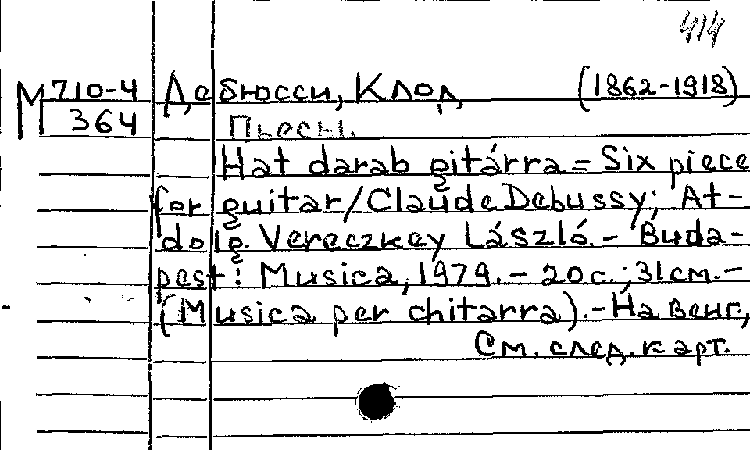 414
М 710-4 Дебюсси, Клод (1862-1918)
364 Пьесы.
Hat darab gitárra = Six piece
for guitar/Claude Debussy; Át-
dolg. Vereczkey László. - Buda-
pest: Musica, 1979. - 20 с.; 31 см. -
(Musica per chitarra). - На венг.,
См. след. карт.